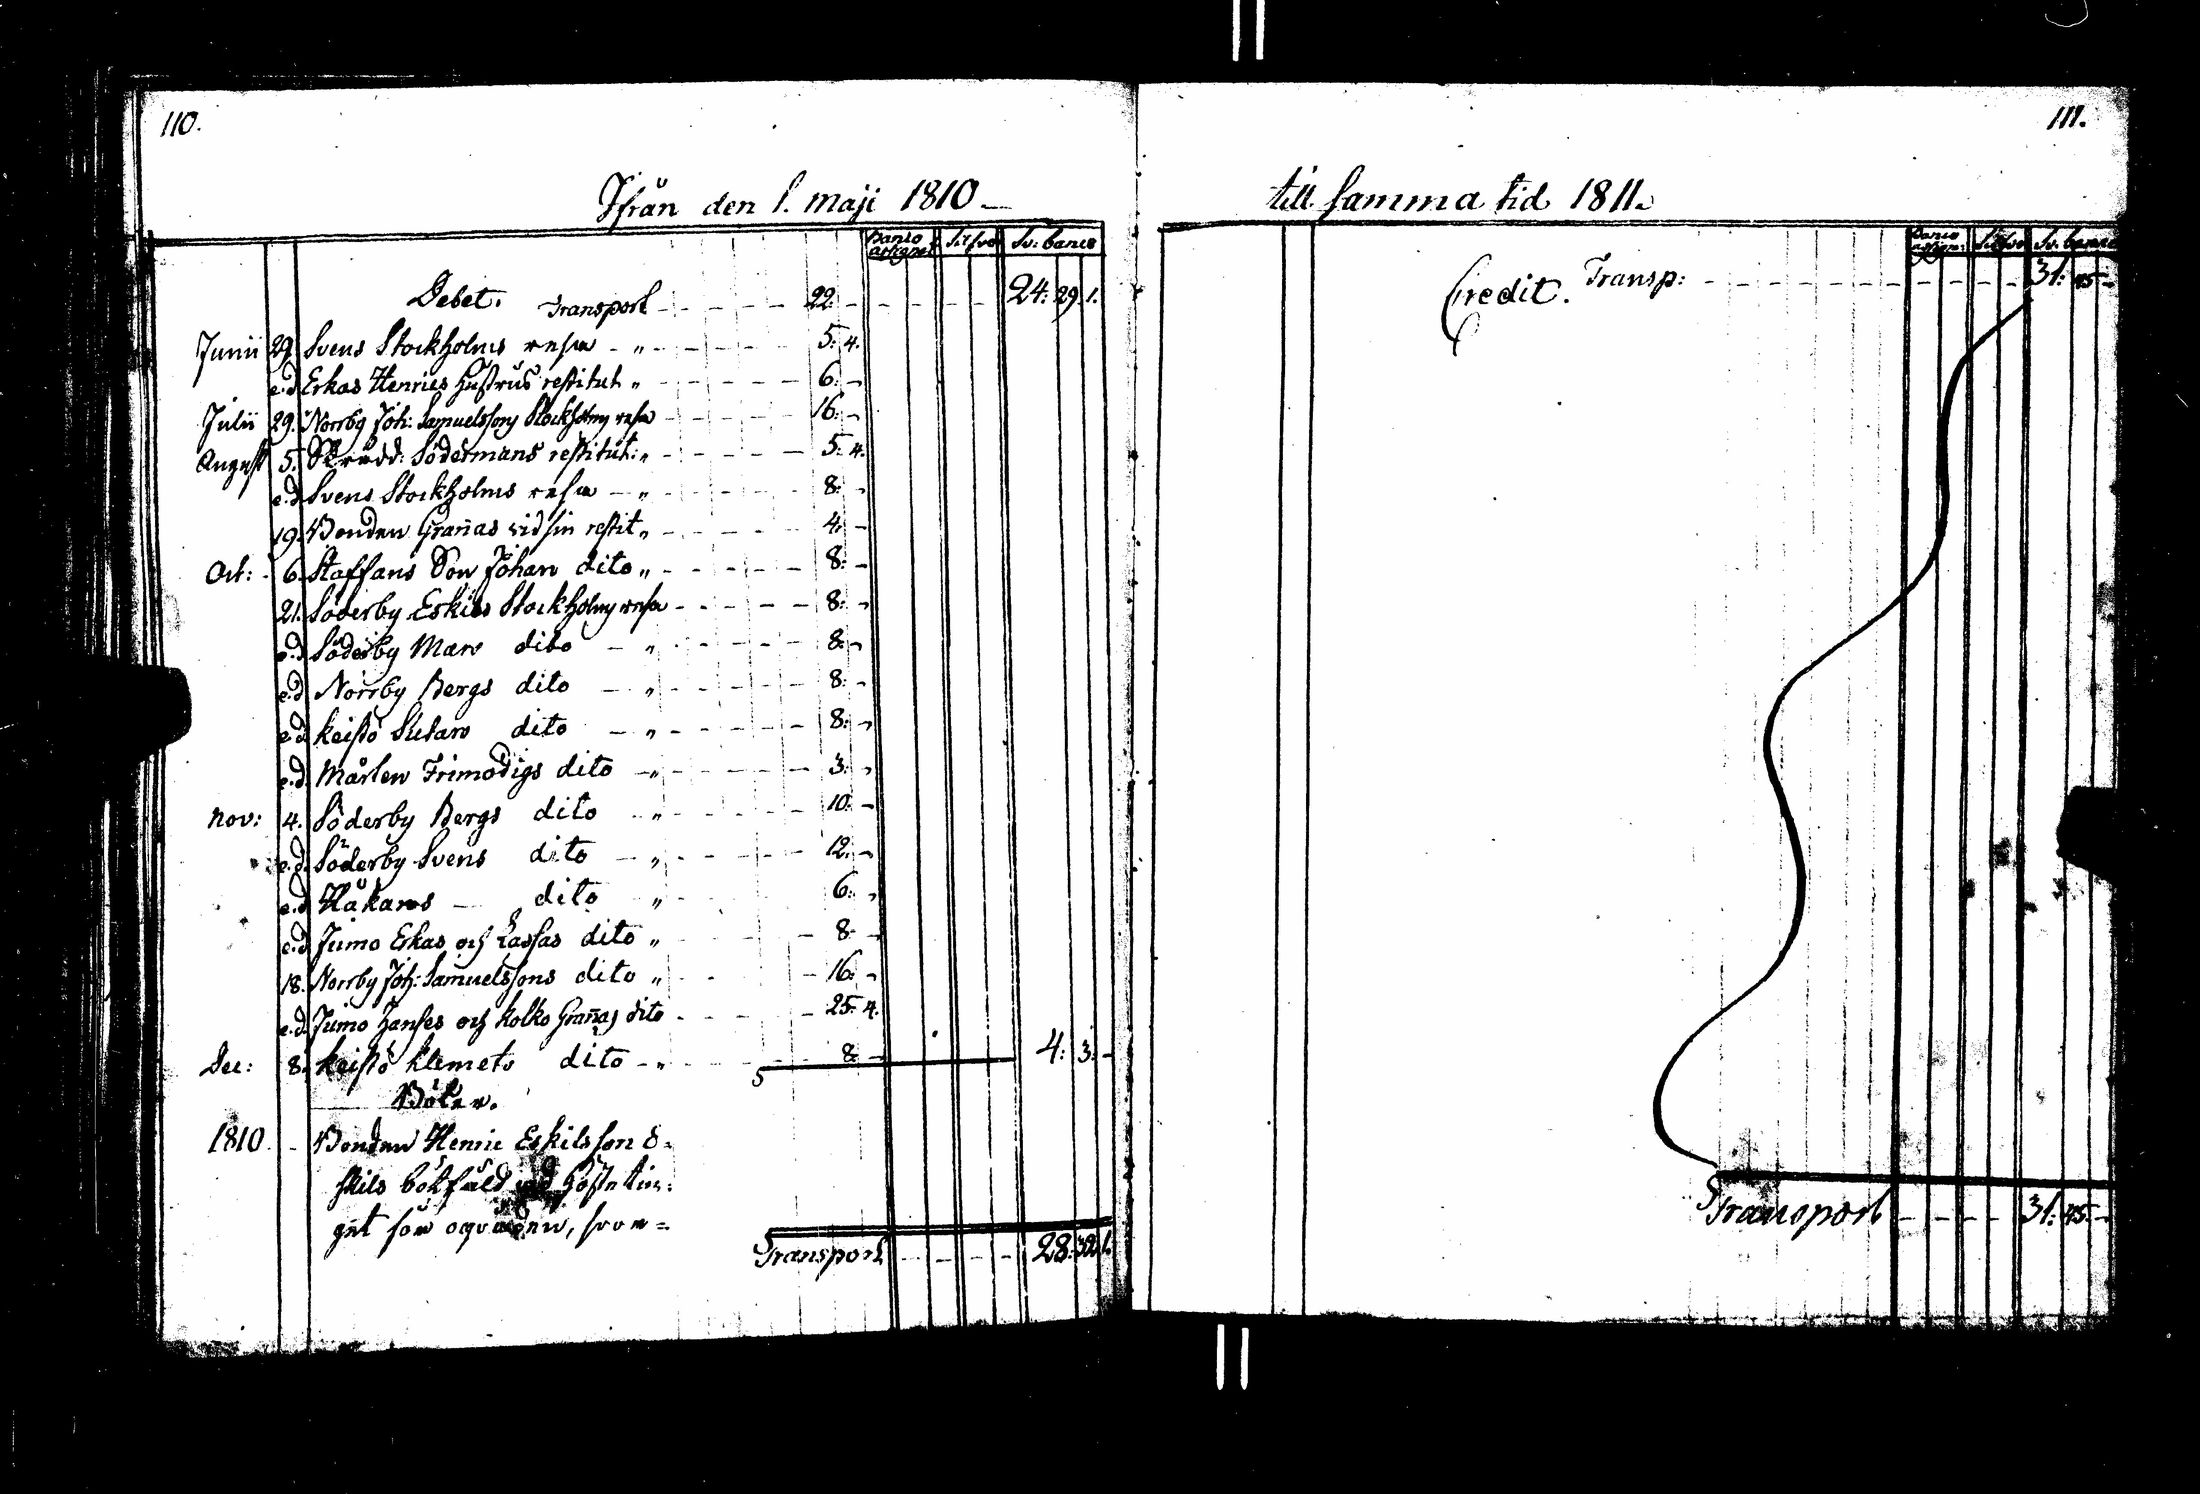 110.
Ifrån den 1. maji 1810 —
Banco assignat Silfver Sv: banco
Debet. Transport - - - - 22. - - - - - 24: 29. 1.
Junii 29. Svens Stockholms resa - " - - - - - 5: 4.
e.d Erkas Henrics hustrus restitut: " - - - - - 6: -
Julii 29. Norrby Joh: Samuelssons Stockholms resa - - - - - 16: -
August 5. Skrädd: Södermans restitut: " - - - - - 5: 4.
e.d Svens Stockholms resa - " - - - - - 8: -
19. Bonden Grañas vid sin restit " - - - - - 4: -
Oct: 6. Staffans Son Johan dito " - - - - - 8: -
21. Söderby Eskils Stockholms resa - - - - - 8: -
e.d Söderby Mars dito - " - - - - - 8: -
e.d Norrby Bergs dito - " - - - - - 8: -
e.d Keistö dito - " - - - - - 8: -
e.d Mårten Frimodigs dito - " - - - - - 3: -
Nov: 4. Söderby Bergs dito - " - - - - - 10: -
e.d. Söderby Svens dito - " - - - - - 12: -
e.d Håkans - dito " - - - 6: -
e.d Jumo Erkas och Lassas dito " - - - - 8: -
18. Norrby Joh: Samuelssons dito " - - - 16: -
e.d. Jumo Hanses och Kolko Grañas dito - - - - - 25: 4.
Dec: 8. Keistö Klemets dito - " - - - - 8: - 4: 3: -
Böter.
1810. - Bonden Henric Eskilsson
skils vid höste tin:
get för
Transport - - - - - 28: 32. 1.
111.
till samma tid 1811.
Banco assignat Silfver Sv. banco
Credit. Transp: - - - - - - - - - - 31: 45 -
Transport - - - - 31: 45. -